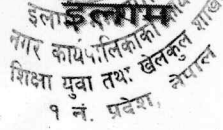 इलाम
नगर कार्यपालिकाको
शिक्षा युवा तथा खेलकुद शाखा
१ नं. प्रदेश, नेपाल